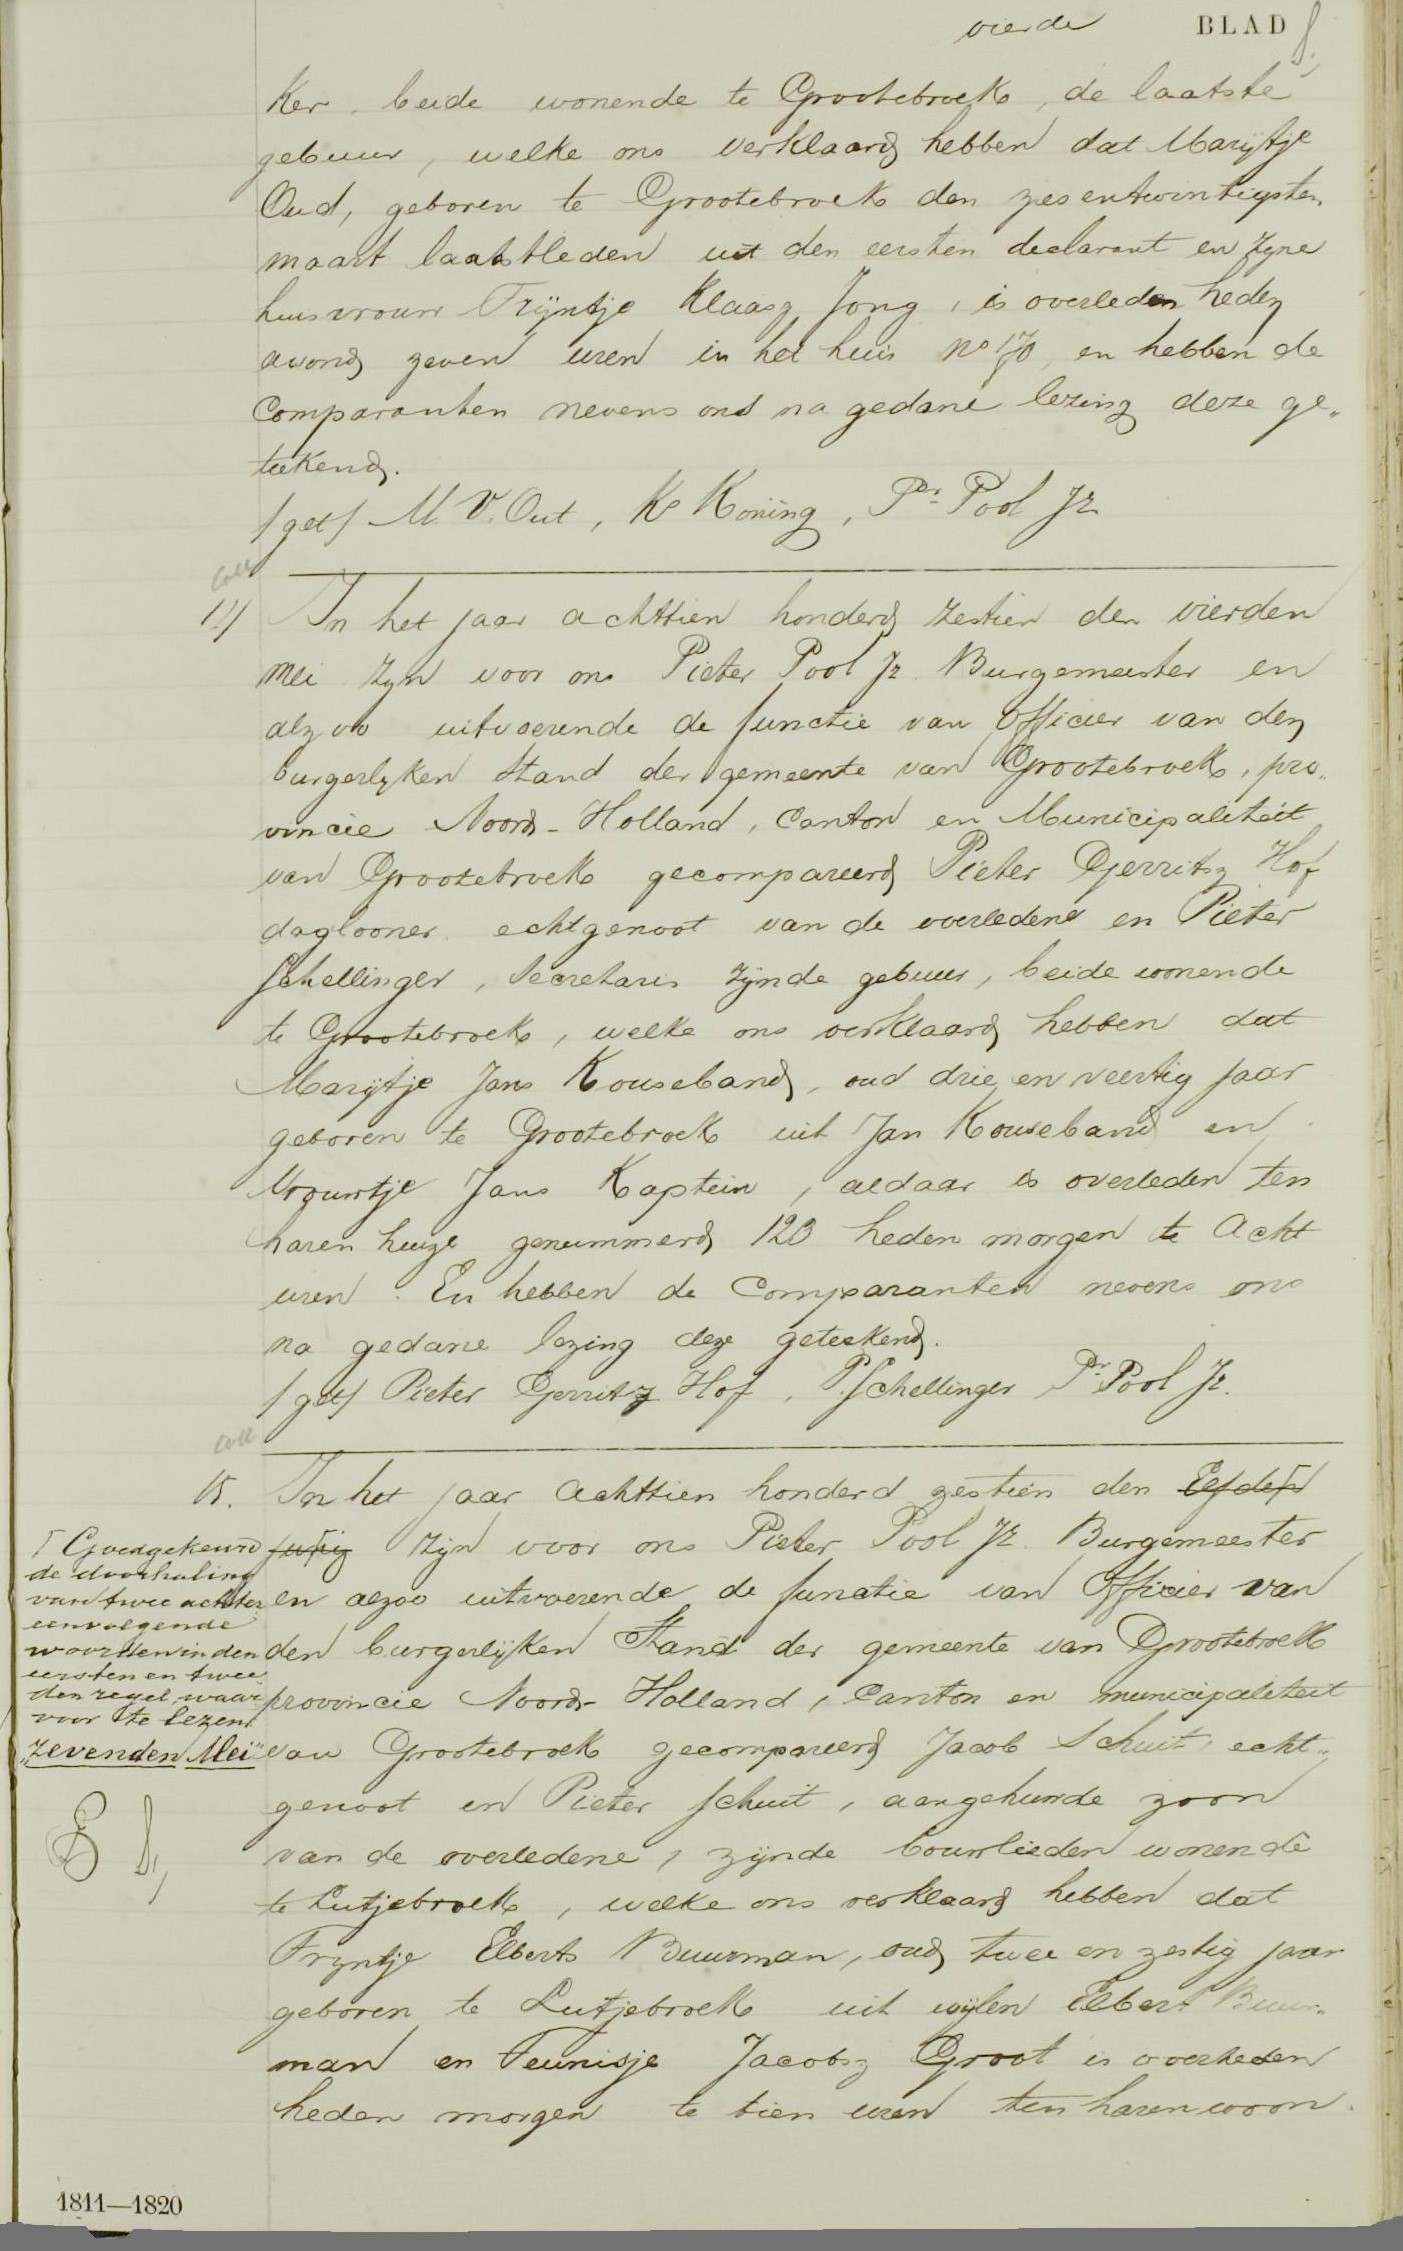 vierde BLAD
ker, beide wonende te Grootebroek, de laatste
gebuur, welke ons verklaard hebben dat Marijtje
Oud, geboren te Grootebroek den zesentwintigsten
maart laatstleden uit den eersten declarant en zijne
huisvrouw Trijntje Klaasz Jong, is overleden heden
avond zeven uren in het huis No 170, en hebben de
Comparanten nevens ons na gedane lezing deze ge„
teekend.
/get/ M. V. Out, Ks Koning, Pr Pool Jz
Coll
14/ In het jaar achttien honderd zestien den vierden
Mei zijn voor ons Pieter Pool Jz. Burgemeester en
alzoo uitvoerende de functie van officier van den
burgerlyken Stand der gemeente van Grootebroek, pro„
vincie Noord-Holland, Canton en Municipaliteit
van Grootebroek gecompareerd Pieter Gerritsz Hof
daglooner echtgenoot van de overledene en Pieter
Schellinger, Secretaris zijnde gebuur, beide wonende
te Grootebroek, welke ons verklaard hebben dat
Marijtje Jans Kouseband, oud drie en veertig jaar
geboren te Grootebroek uit Jan Kouseband en
Vrouwtje Jans Kaptein, aldaar is overleden ten
haren huize genummerd 123 heden morgen te Acht
uren. En hebben de Comparanten nevens ons
na gedane lezing deze geteekend.
/get/ Pieter Gerritz Hof, P. Schellinger Pr Pool Jz.
Coll
15. In het jaar Achttien honderd zestien den Elfden
Junij zijn voor ons Pieter Pool Jz. Burgemeester
en alzoo uitvoerende de functie van Officier van
den burgerlijken Stand der gemeente van Grootebroek
provincie Noord-Holland, Canton en municipaliteit
van Grootebroek gecompareerd Jacob Schuit, echt„
genoot en Pieter Schuit, aangehuwde zoon
van de overledene, zijnde bouwlieden wonende
te Lutjebroek, welke ons verklaard hebben dat
Tryntje Elberts Buurman, oud twee en zestig jaar
geboren te Lutjebroek uit wijlen Elbert Buur„
man en Teunisje Jacobsz Groot is overleden
heden morgen te tien uren ten haren woon„
Goedgekeurd
de doorhaling
van twee achter
eenvolgende
woorden in den
eersten en twee
den regel, waar
voor te lezen
„Zevenden Mei"
1811—1820